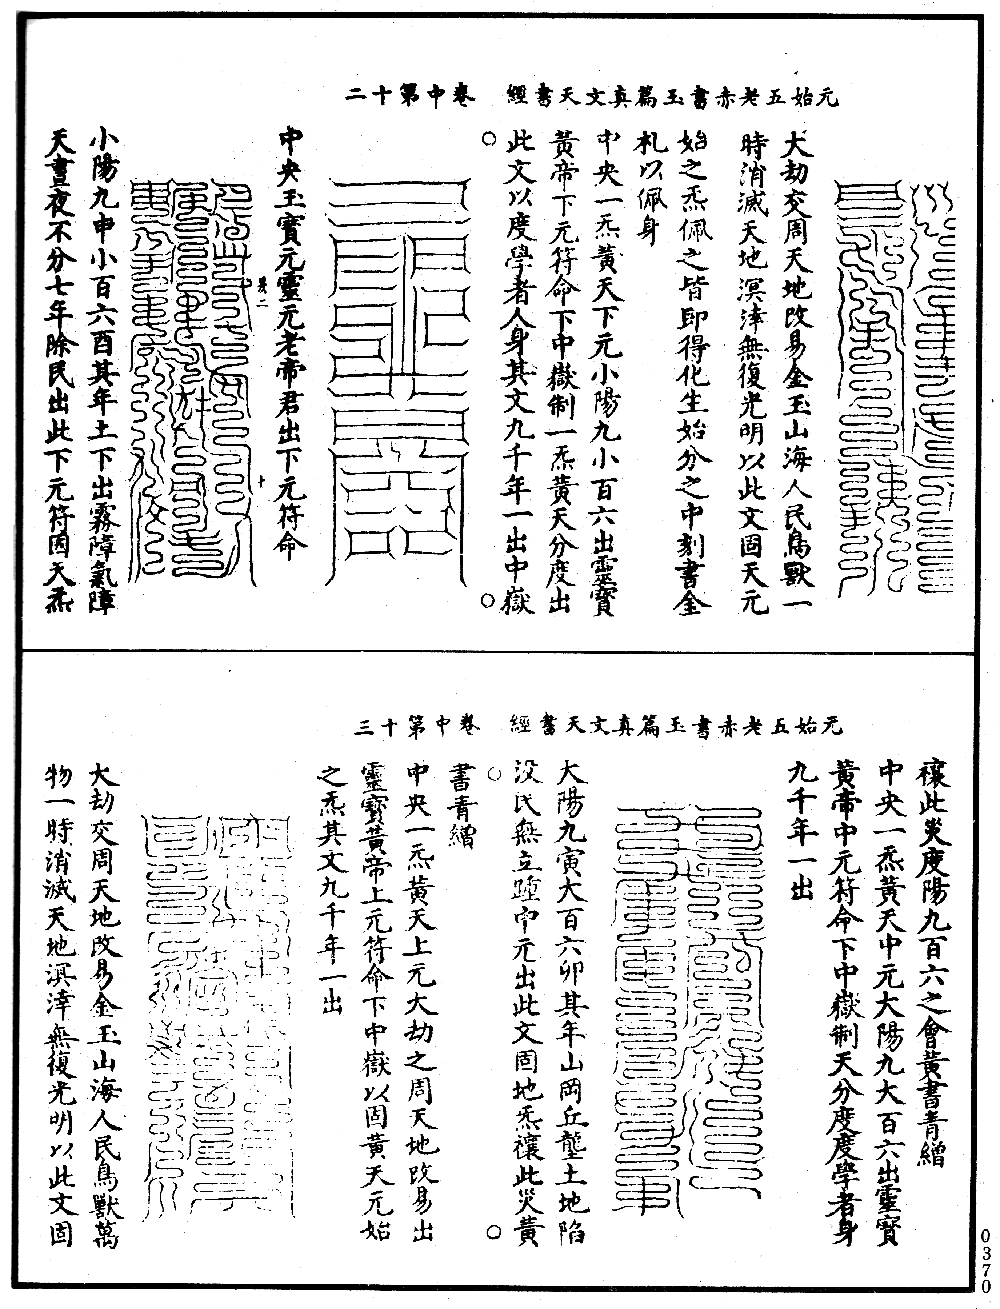 元始五老赤書玉篇真文天書經　卷中第十二
大劫交周天地改易金玉山海人民鳥獸一
時消滅天地溟涬無復光明以此文固天元
始之炁佩之皆即得化生始分之中刻書金
札以佩身
中央一炁黃天下元小陽九小百六出靈寶
黃帝下元符命下中嶽制一炁黃天分度出
此文以度學者人身其文九千年一出中嶽
中央玉寶元靈元老帝君出下元符命
卷二　十
小陽九申小百六酉其年土下出霧障氣障
天晝夜不分七年除民出此下元符固天炁
元始五老赤書玉篇真文天書經　卷中第十三
禳此災度陽九百六之會黃書青繒
中央一炁黃天中元大陽九大百六出靈寶
黃帝中元符命下中嶽制天分度度學者身
九千年一出
大陽九寅大百六卯其年山岡丘壟土地陷
没民無立踵中元出此文固地炁禳此災黃
書青繒
中央一炁黃天上元大劫之周天地改易出
靈寶黃帝上元符命下中嶽以固黃天元始
之炁其文九千年一出
大劫交周天地改易金玉山海人民鳥獸萬
物一時消滅天地溟涬無復光明以此文固
0370